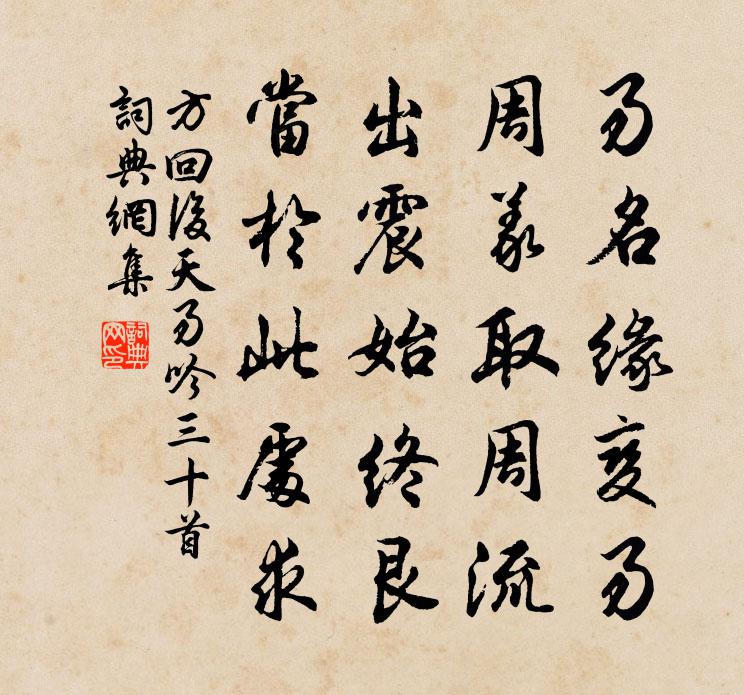 易名緣變易
周義取周流
出震始終艮
當於此處求
方回後天易吟三十首
詞典網集
詞典網印